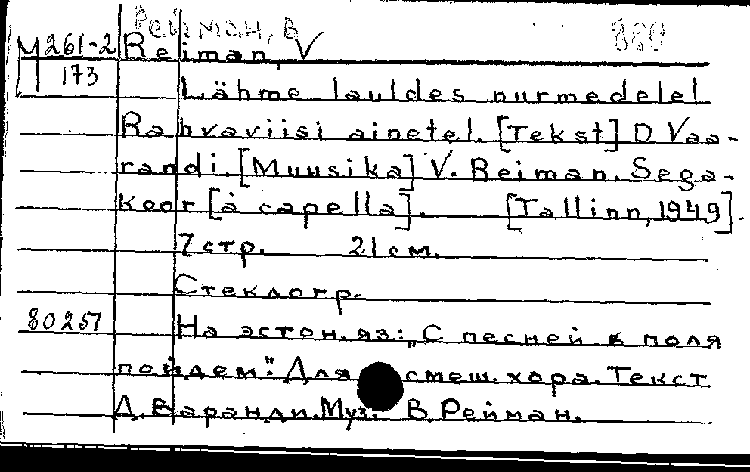 Рейман, В
880
М 261-2 Reiman, V
173
Lähme lauldes nurmedele!
Rahvaviisi ainetel. [Tekst] D. Vaa-
randi. [Muusika] V. Reiman. Sega-
koor [à capella]. [Tallinn, 1949].
7 стр. 21 см.
Стеклогр.
80251 На эстон. яз: „С песней в поля
пойдем". Для смеш. хора. Текст
Д. Варанди. Муз. В. Рейман.